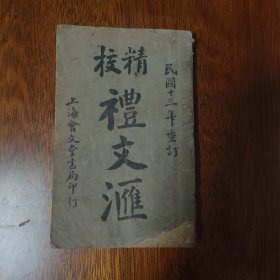 民國十三年重訂
精校
禮文滙
上海會文堂書局印行